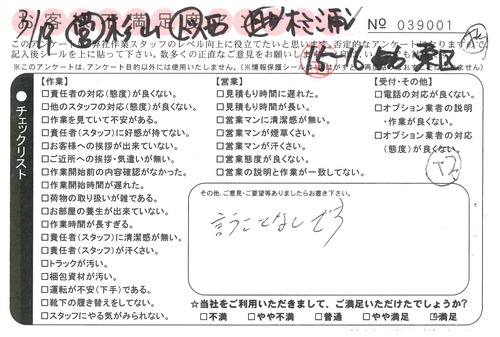 お客様満足度
No 039001
このアンケートは弊社作業スタッフのレベル向上に役立てたいと思います。否定的なアンケートになりますので、
記入後シールを上に貼って下さい。数多くの正直なご意見をお願いします
※このアンケートは、アンケート目的以外には使用いたしません。
チェックリスト
【作業】
□責任者の対応(態度)が良くない。
□他のスタッフの対応(態度)が良くない。
□作業を見ていて不安がある。
□責任者(スタッフ)に好感が持てない。
□お客様への挨拶が出来ていない。
□ご近所への挨拶・気遣いが無い。
□作業開始前の内容確認がなかった。
□作業開始時間が遅れた。
□荷物の取り扱いが雑である。
□お部屋の養生が出来ていない。
□作業時間が長すぎる。
□責任者(スタッフ)に清潔感が無い。
□責任者(スタッフ)が汗くさい。
□トラックが汚い。
□梱包資材が汚い。
□運転が不安(下手)である。
□靴下の履き替えをしてない。
□スタッフにやる気がみられない。
【営業】
□見積もり時間に遅れた。
□見積もり時間が長い。
□営業マンに清潔感が無い。
□営業マンが煙草くさい。
□営業マンが汗くさい。
□営業態度が良くない。
□営業の説明と作業が一致してない。
【受付・その他】
□電話の対応が良くない。
□オプション業者の説明
・作業が良くない。
□オプション業者の対応
(態度)が良くない。
その他、ご意見・ご要望等ありましたらお書き下さい。
言うことなしです
☆当社をご利用いただきまして、ご満足いただけたでしょうか?
□不満 □やや不満 □普通 □やや満足 ☑満足